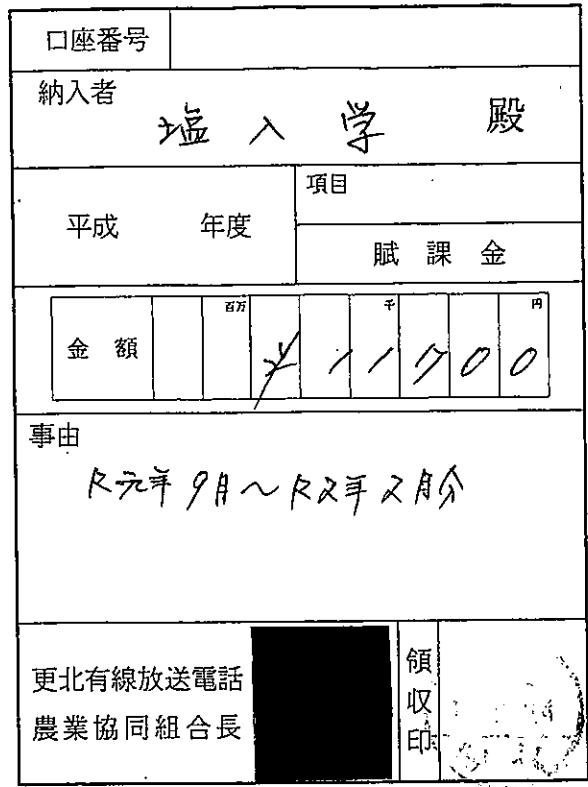 口座番号
納入者
塩入学 殿
平成 年度
項目
賦課金
金額 百万 千 円
¥11700
事由
R元年9月～R2年2月分
更北有線放送電話
農業協同組合長
領収印